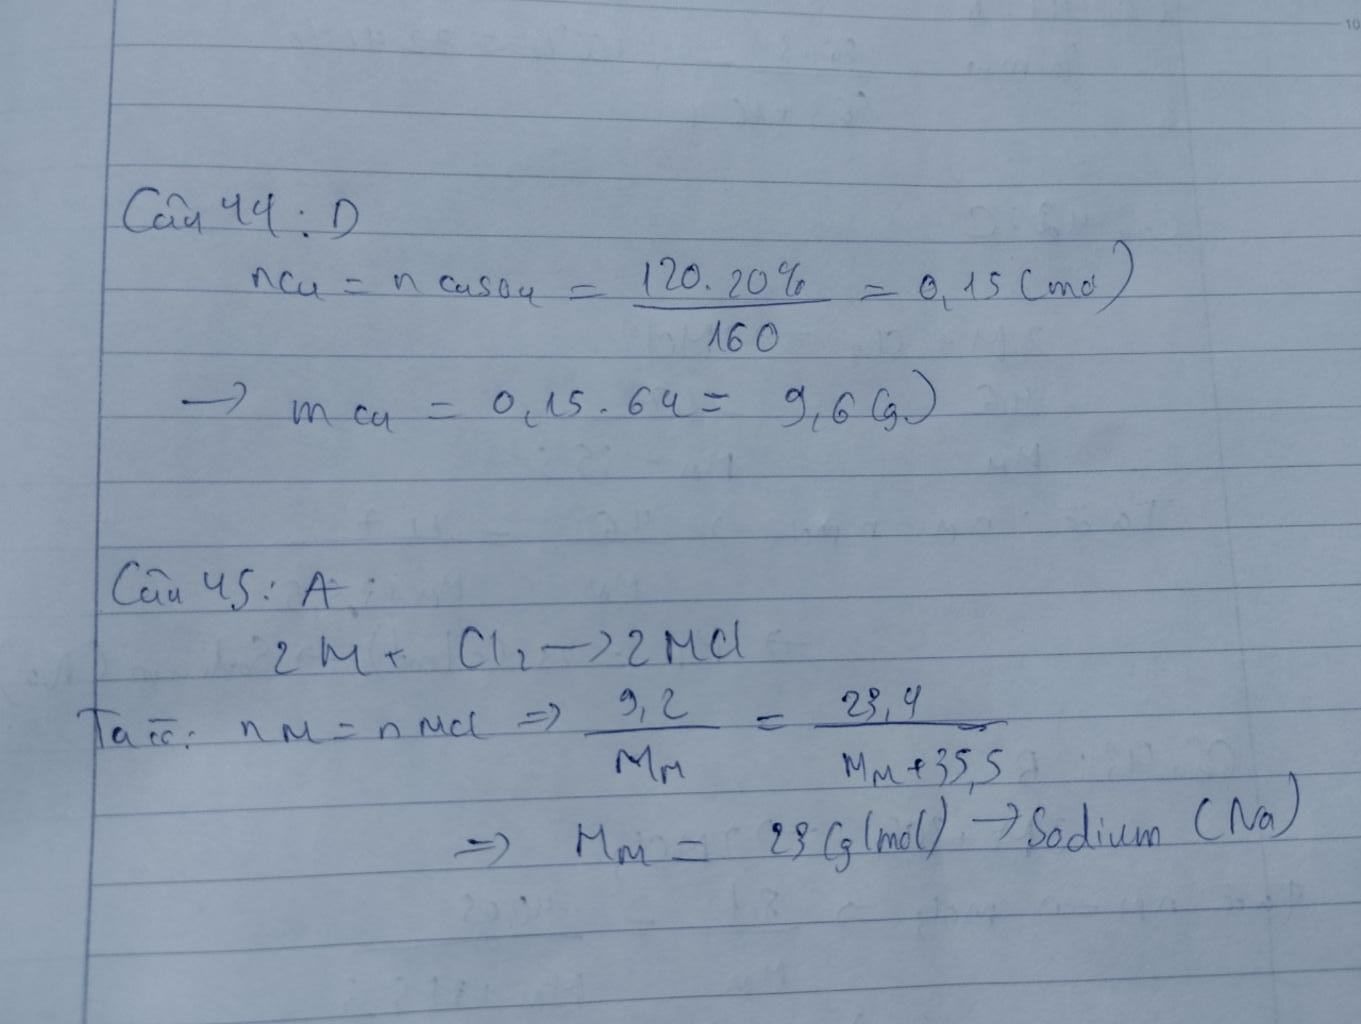 10
Câu 44: D
nCu = n CuSO4 = 120.20% / 160 = 0,15 (mol)
→ m Cu = 0,15.64 = 9,6 (g)
Câu 45: A
2M + Cl2 → 2MCl
Ta có: nM = nMCl ⇒ 9,2 / MM = 23,4 / MM + 35,5
⇒ MM = 23 (g/mol) → Sodium (Na)